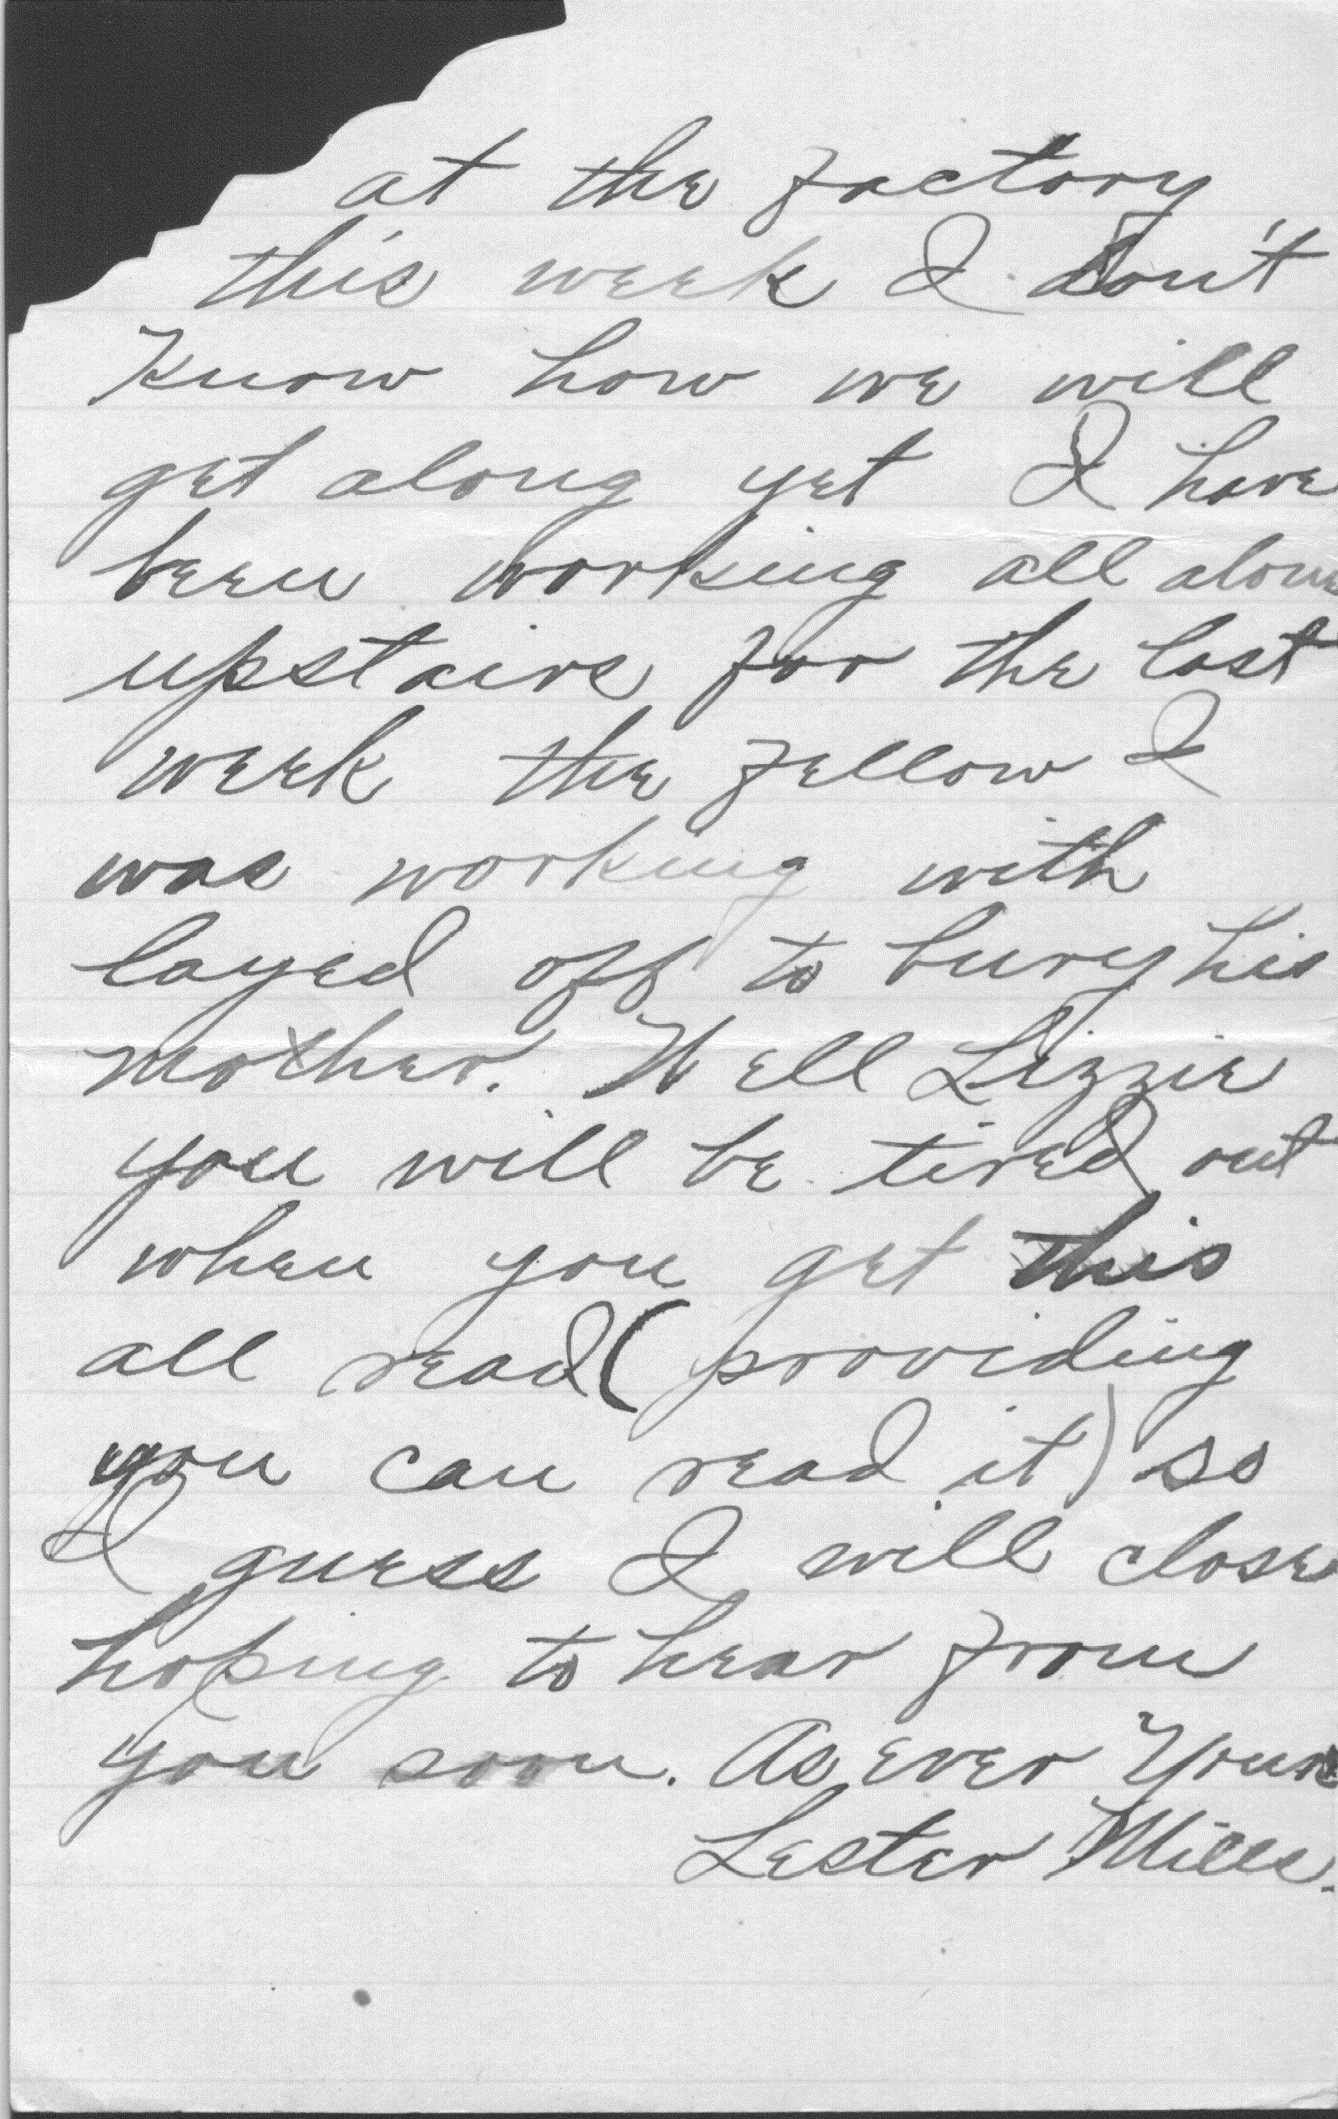 at the factory
this week I don't
Know how we will
get along yet I have
been working all alone
upstairs for the last
week the fellow I
was working with
layed off to bury his
mother. Well Lizzie
you will be tired out
when you get this
all read (providing
you can read it) so
I guess I will close
hoping to hear from
you soon. As ever Yours
Lester Mills.